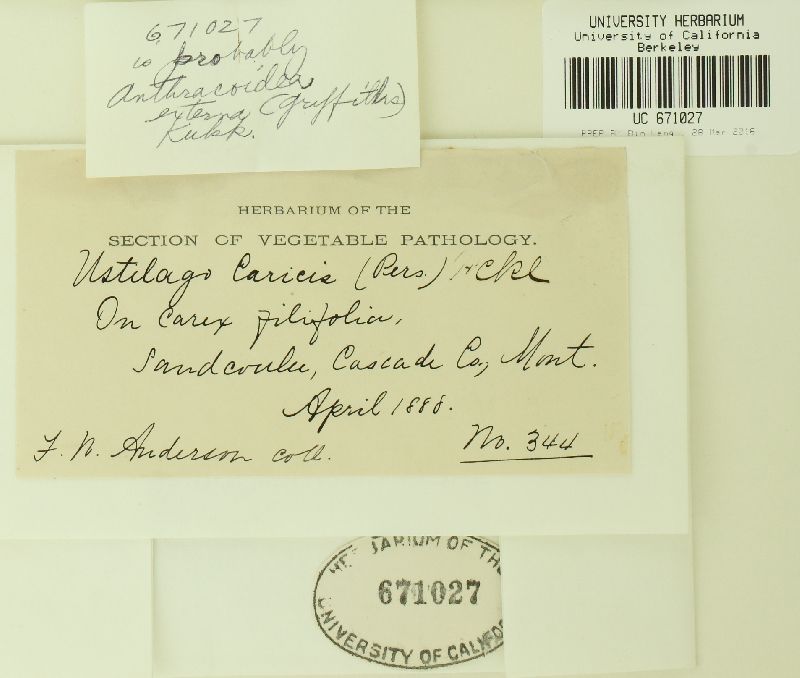 671027
is probably
Anthracoidea
externa (Griffiths)
Kukk.
UNIVERSITY HERBARIUM
University of California
Berkeley
UC 671027
28 Mar 2016
HERBARIUM OF THE
SECTION OF VEGETABLE PATHOLOGY.
Ustilago Caricis (Pers.)
On Carex filifolia,
Sandcoulee, Cascade Co., Mont.
April 1888.
F. W. Anderson coll.
No. 344
HERBARIUM OF THE
671027
UNIVERSITY OF CALIFO